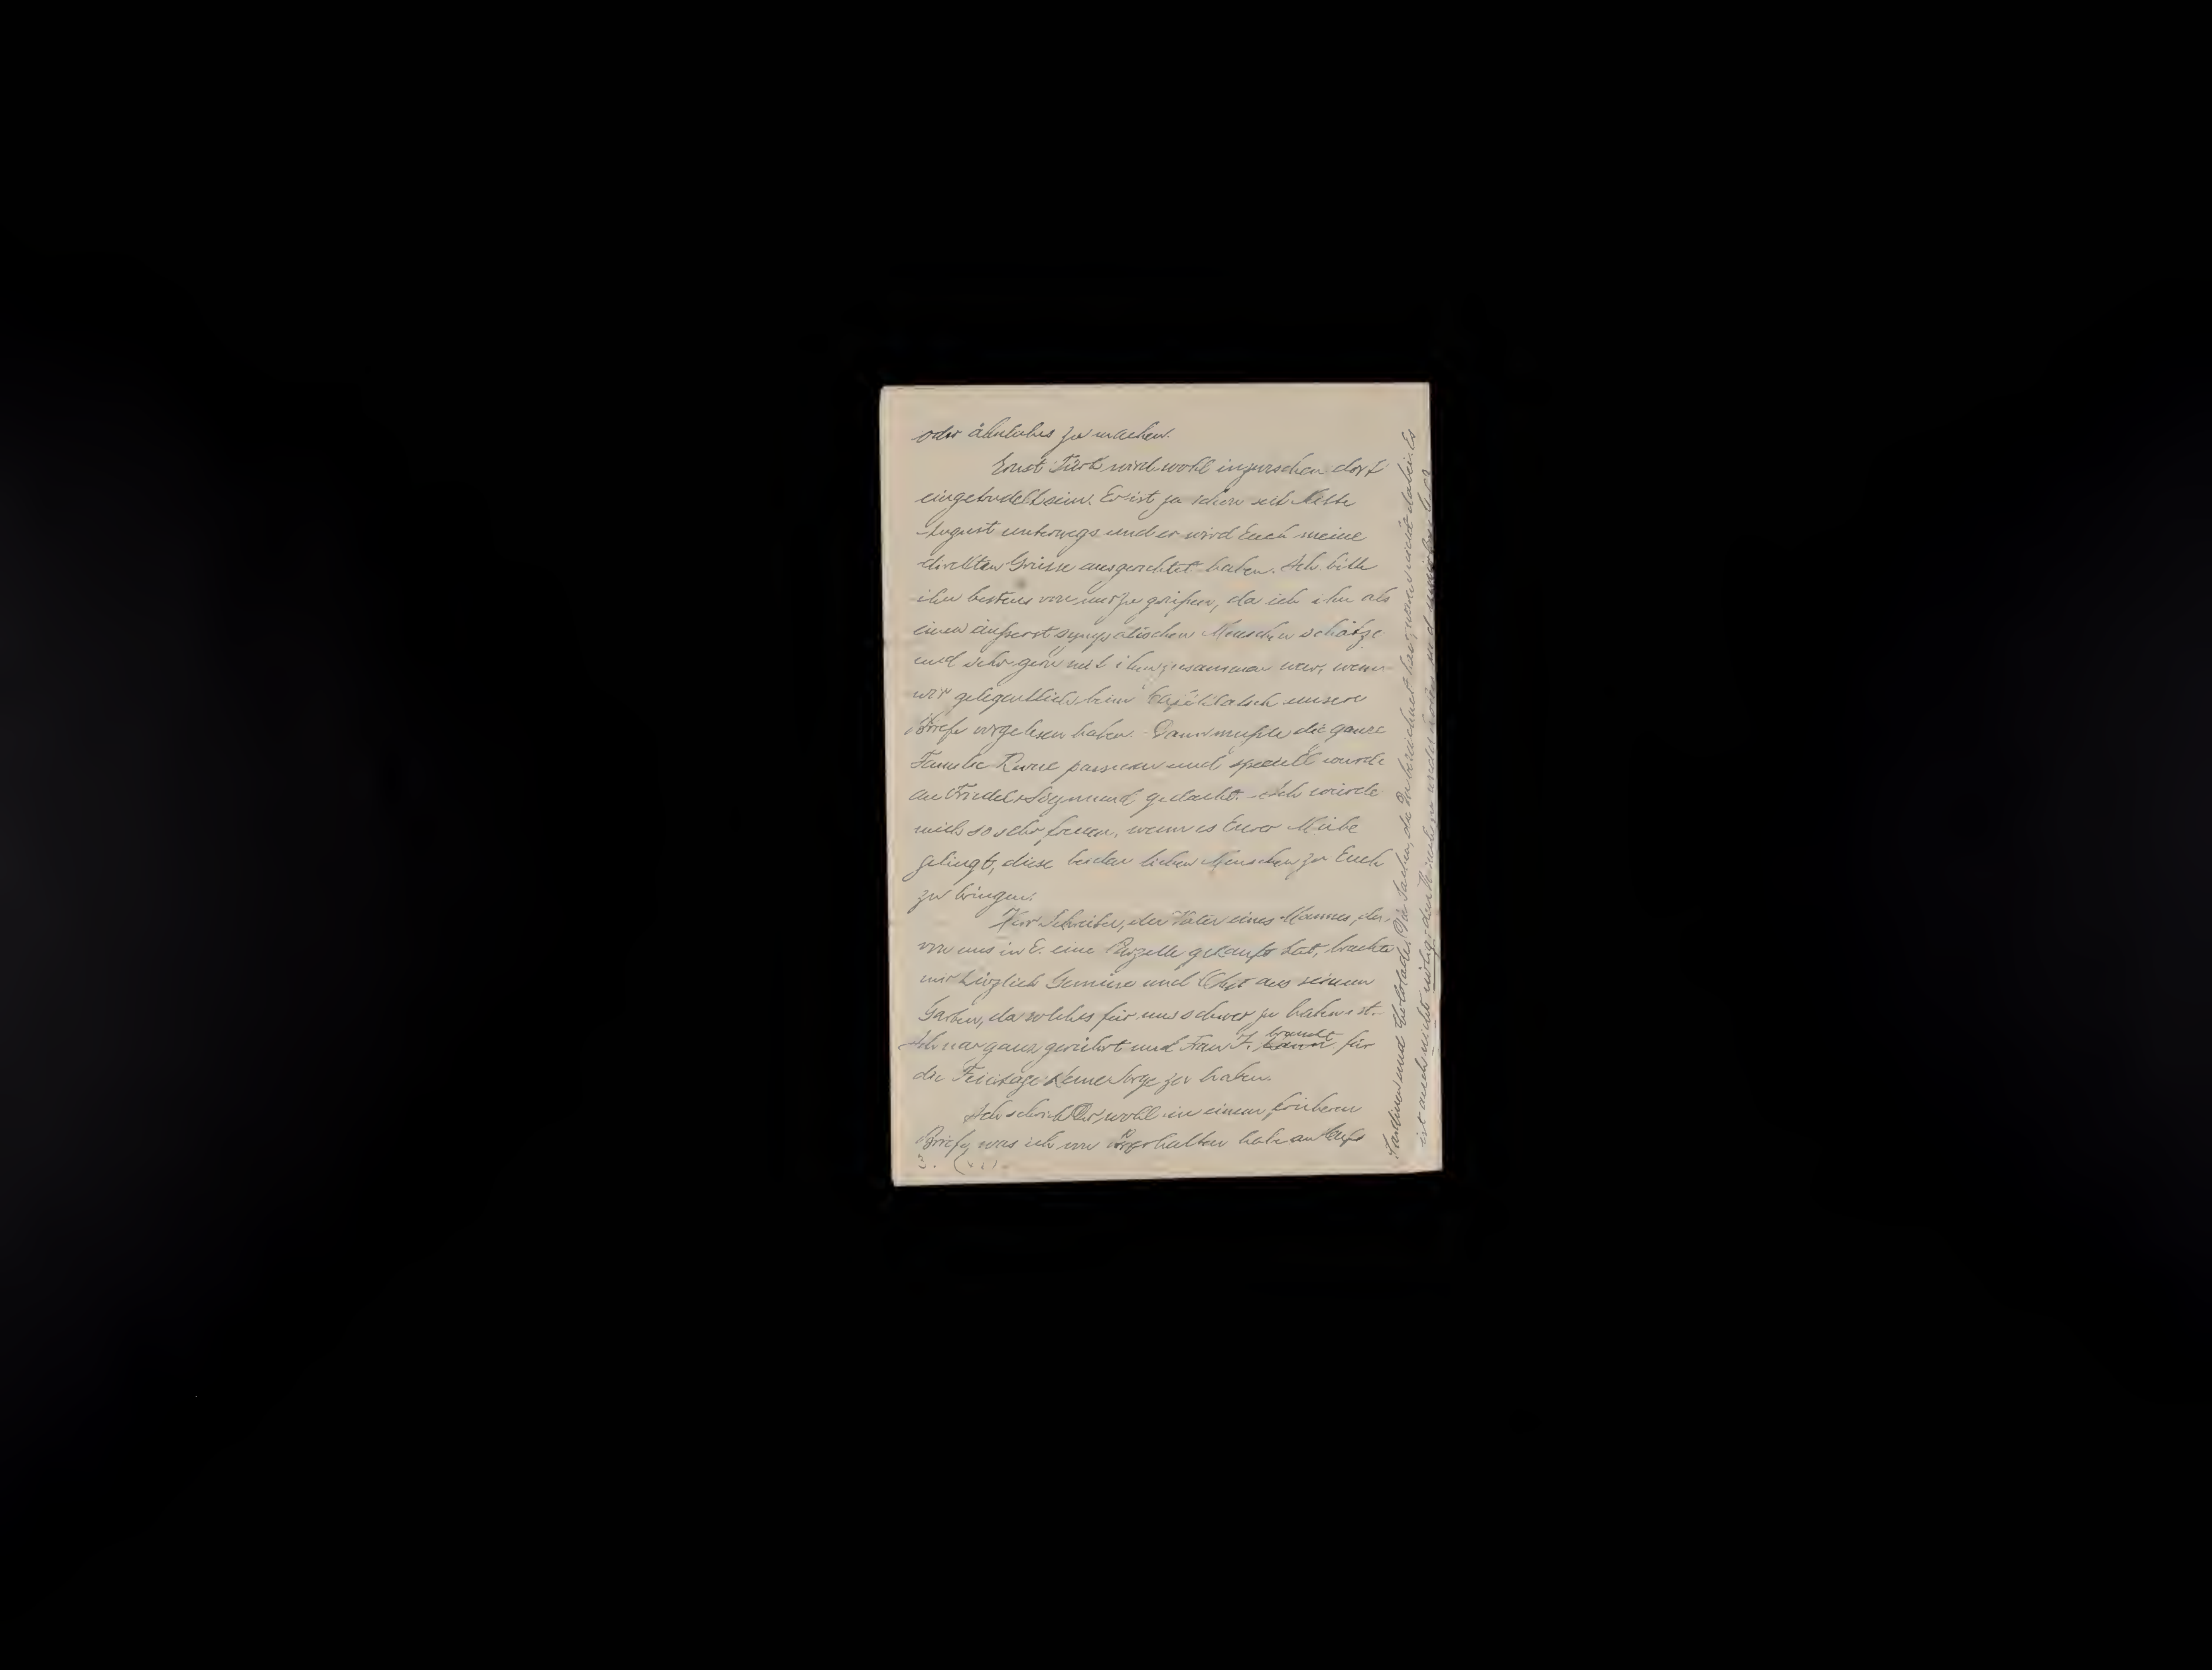 oder ähnliches zu machen.
Ernst Türk wird wohl inzwischen dort
eingetrudelt sein. Er ist ja schon seit Mitte
August unterwegs und er wird Euch meine
direkten Grüsse ausgerichtet haben. Ich bitte
ihn bestens von mir zu grüßen, da ich ihn als
einen äußerst sympatischen Menschen schätze
und sehr gern mit ihm zusammen war, wenn
wir gelegentlich beim Caféklatsch unsere
Briefe vorgelesen haben. Dann mußte die ganze
Familie Revue passieren und speziell wurde
an Friedel & Siegmund gedacht. Ich würde
mich so sehr freuen, wenn es Eurer Mühe
gelingt, diese beiden lieben Menschen zu Euch
zu bringen.
Herr Schreiber, der Vater eines Mannes, der
von uns in E. eine Parzelle gekauft hat, brachte
mir kürzlich Gemüse und Obst aus seinem
Garten, da solches für uns schwer zu haben ist.
Ich war ganz gerührt und Frau F. brauchte für
die Feiertage keine Sorge zu haben.
Ich schrieb Dir wohl in einem früheren
Briefe, was ich von erhalten habe an
Sardinen und Chocolade. Die Sachen, die Du bezeichnet hast, waren nicht dabei. Es
ist auch nicht nötig, den